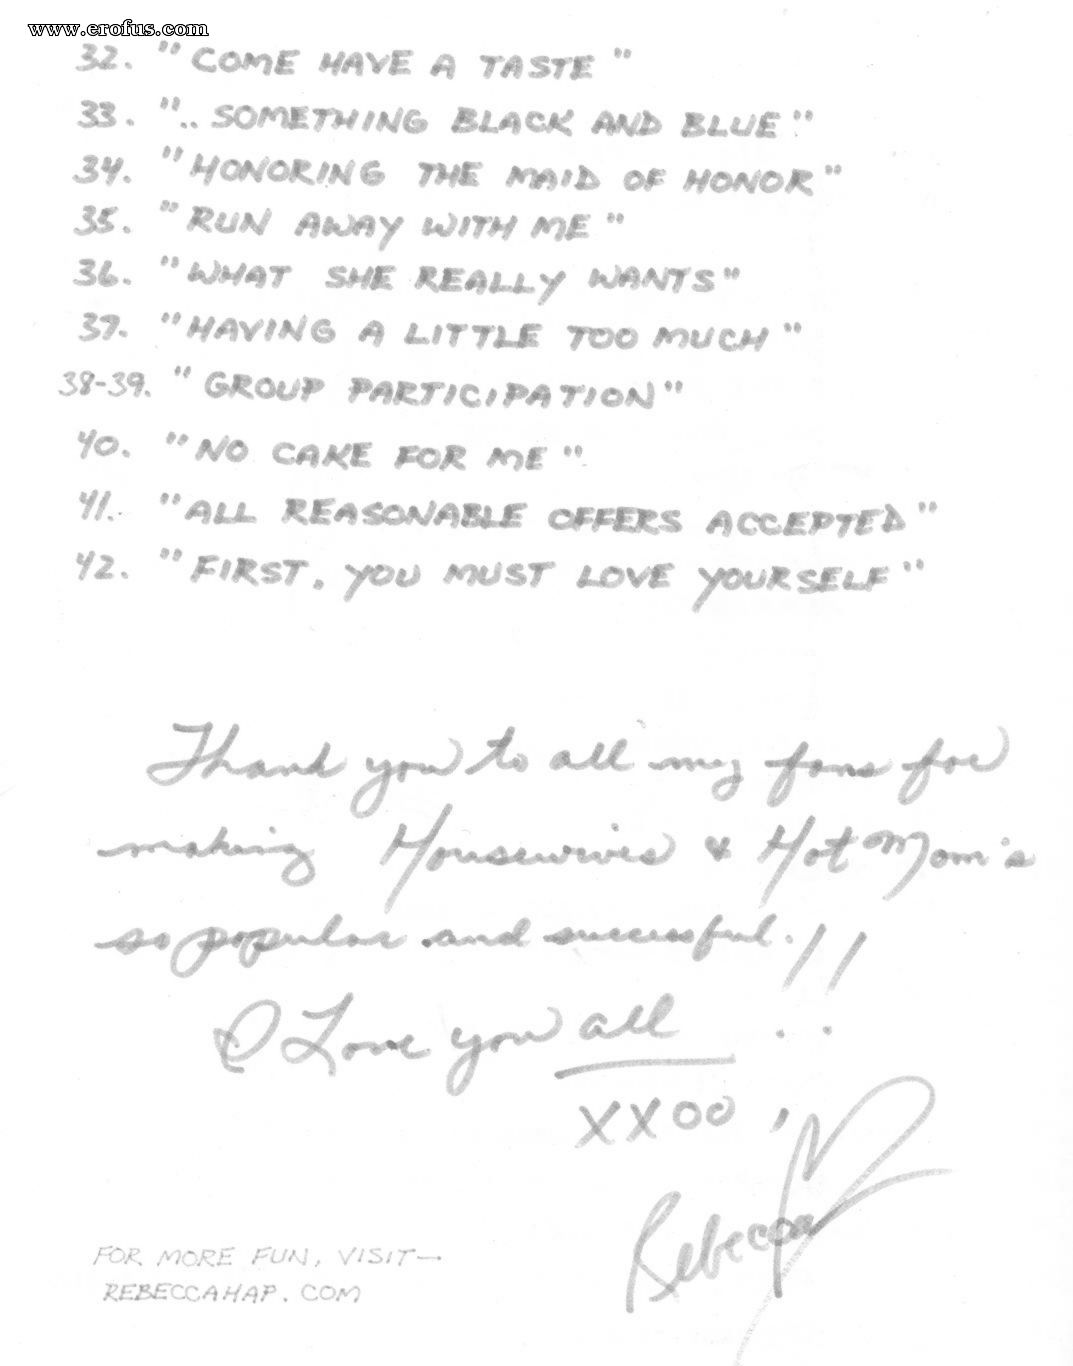 www.erofus.com
32. "COME HAVE A TASTE"
33. ".. SOMETHING BLACK AND BLUE"
34. "HONORING THE MAID OF HONOR"
35. "RUN AWAY WITH ME"
36. "WHAT SHE REALLY WANTS"
37. "HAVING A LITTLE TOO MUCH"
38-39. "GROUP PARTICIPATION"
40. "NO CAKE FOR ME"
41. "ALL REASONABLE OFFERS ACCEPTED"
42. "FIRST, YOU MUST LOVE YOURSELF"
Thank you to all my fans for
making Housewives & Hot Mom's
so popular and successful.!!
I Love you all
XXOO,
Rebecca
FOR MORE FUN, VISIT—
REBECCAHAP.COM